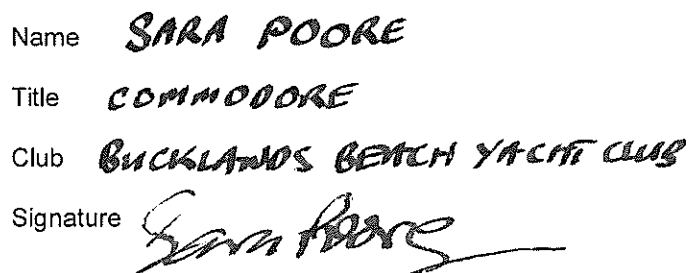 Name SARA POORE
Title COMMODORE
Club BUCKLANDS BEACH YACHT CLUB
Signature Sara Poore